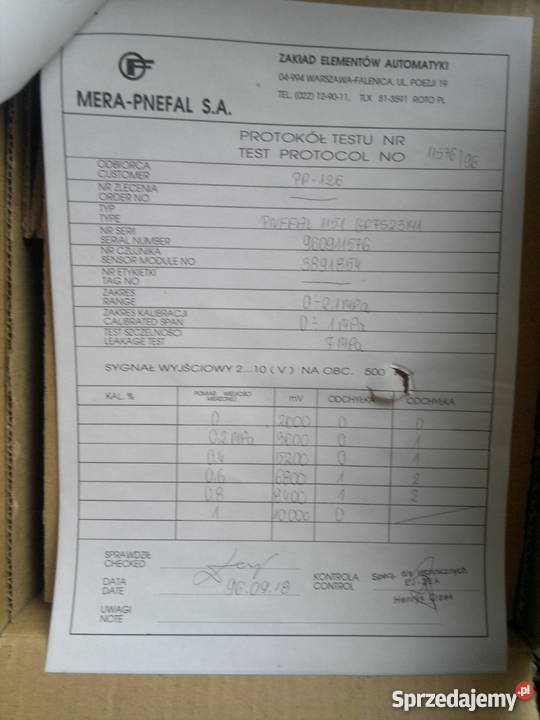 ZAKŁAD ELEMENTÓW AUTOMATYKI
04-994 WARSZAWA-FALENICA, UL. POEZJI 19
TEL. (022) 12-90-11, TLX 81-3591 ROTO PL
MERA-PNEFAL S.A.
PROTOKÓŁ TESTU NR
TEST PROTOCOL NO 11576/96
ODBIORCA
CUSTOMER PP-126
NR ZLECENIA
ORDER NO
TYP
TYPE PNEFAL 1151
NR SERII
SERIAL NUMBER 960911576
NR CZUJNIKA
SENSOR MODULE NO 3891854
NR ETYKIETKI
TAG NO
ZAKRES
RANGE 0-2.1 MPa
ZAKRES KALIBRACJI
CALIBRATED SPAN 0-1 MPa
TEST SZCZELNOŚCI
LEAKAGE TEST 7 MPa
SYGNAŁ WYJŚCIOWY 2...10 (V) NA OBC. 500
KAL. % POMIAR WIELKOŚCI MIERZONEJ mV ODCHYŁKA ODCHYŁKA
0 2000 0 0
0.2 MPa 3600 0 1
0.4 5200 0 1
0.6 6800 1 2
0.8 8400 1 2
1 10.000 0
SPRAWDZIŁ
CHECKED
DATA
DATE 96.09.18
KONTROLA
CONTROL
Spec. d/s technicznych
Henryk Gizek
UWAGI
NOTE
Sprzedajemy.pl